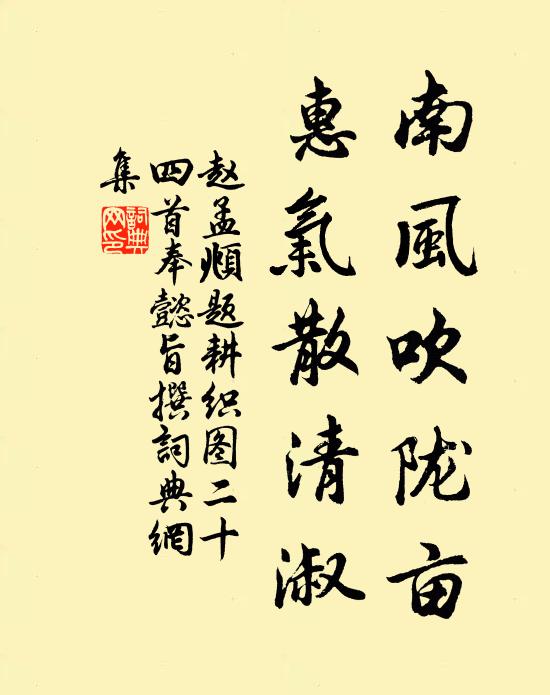 南風吹陇亩
惠氣散清淑
赵孟頫题耕织图二十
四首奉懿旨撰詞典網
集
詞典網印